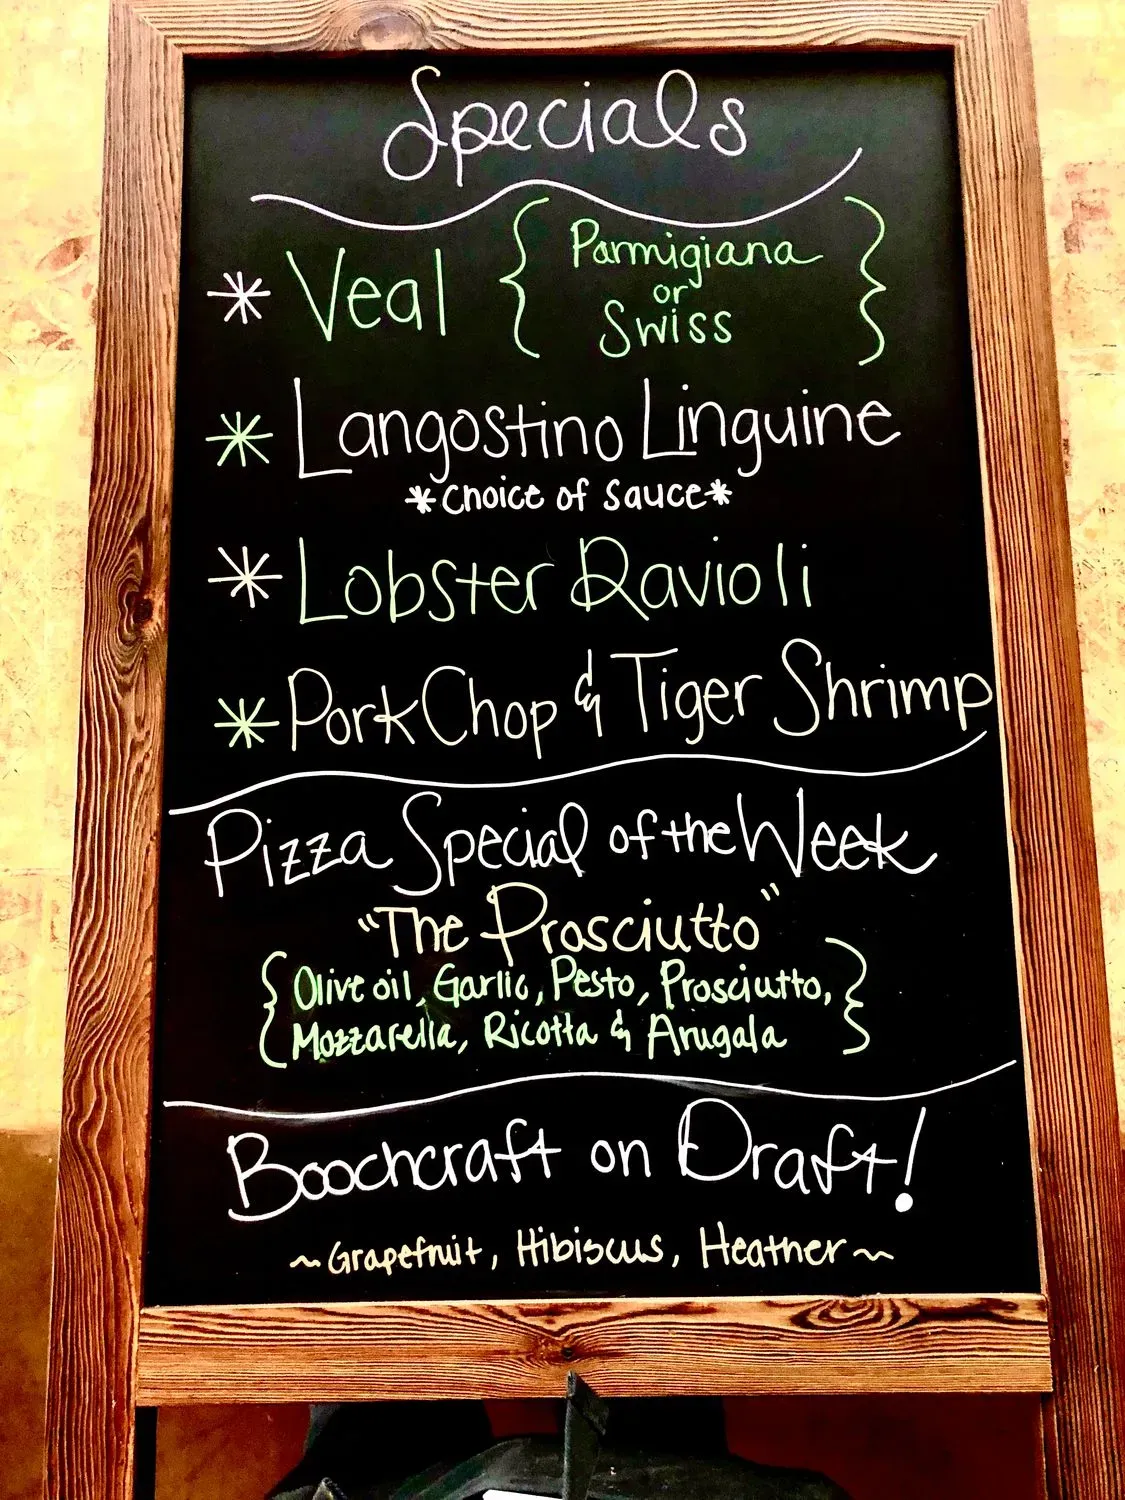 Specials
* Veal { Parmigiana
or
Swiss }
* Langostino Linguine
*Choice of Sauce*
* Lobster Ravioli
* Pork Chop & Tiger Shrimp
Pizza Special of the Week
"The Prosciutto"
{ Olive oil, Garlic, Pesto, Prosciutto,
Mozzarella, Ricotta & Arugala }
Boochcraft on Draft!
~Grapefruit, Hibiscus, Heather~